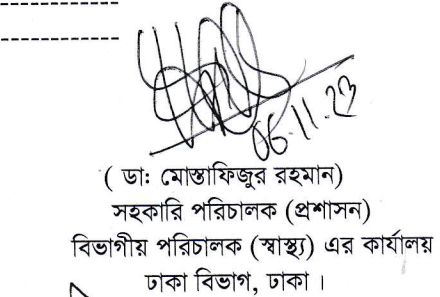 06.11.23
( ডাঃ মোস্তাফিজুর রহমান)
সহকারি পরিচালক (প্রশাসন)
বিভাগীয় পরিচালক (স্বাস্থ্য) এর কার্যালয়
ঢাকা বিভাগ, ঢাকা ।